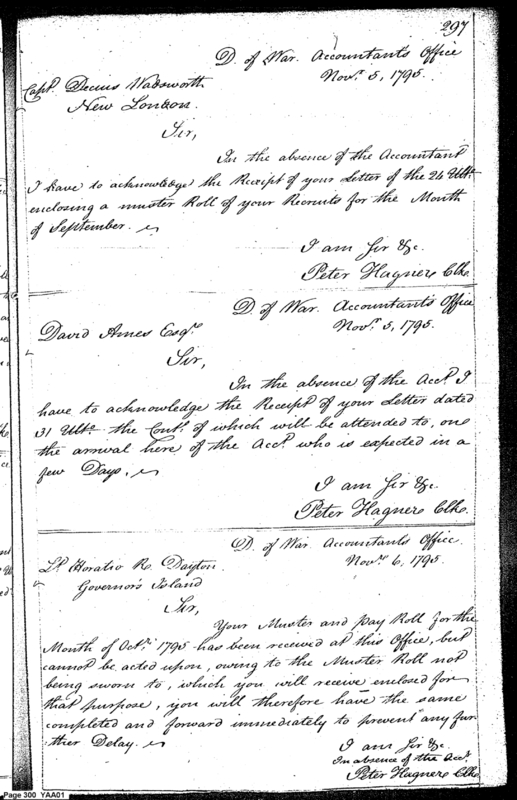 297
D. of War. Accountants Office
Novr. 5, 1795.
Capt. Decius Wadsworth
New London.
Sir,
In the absence of the Accountant
I have to acknowledge the Receipt of your Letter of the 24 Ulto.
enclosing a muster Roll of your Recruits for the Month
of September.
I am Sir &c.
Peter Hagner Clke.
D. of War. Accountants Office
Novr. 5, 1795.
David Ames Esqr.
Sir,
In the absence of the Acct. I
have to acknowledge the Receipt of your Letter dated
31 Ulto. the Cont. of which will be attended to, one
the arrival here of the Acct. who is expected in a
few Days.
I am Sir &c.
Peter Hagner Clke.
D. of War. Accountants Office
Novr. 6, 1795.
Lt. Horatio R. Dayton
Governor's Island
Sir,
Your Muster and Pay Roll for the
Month of Octr. 1795 has been received at this Office, but
cannot be acted upon, owing to the Muster Roll not
being sworn to, which you will receive enclosed for
that purpose, you will therefore have the same
completed and forward immediately to prevent any fur
ther Delay.
I am Sir &c.
In absence of the Acct.
Peter Hagner Clke.
Page 300 YAA01